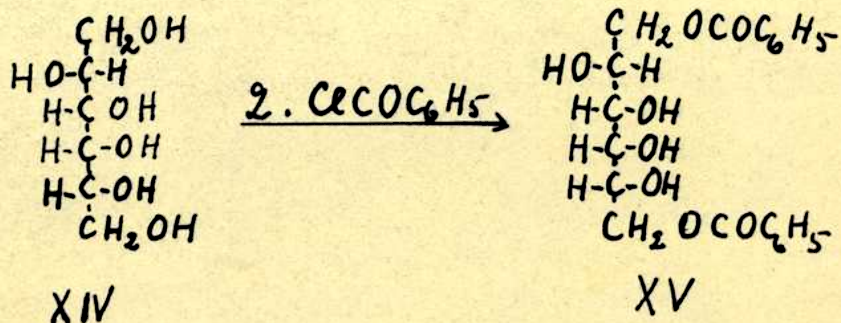 CH2OH
HO-C-H
H-C-OH
H-C-OH
H-C-OH
CH2OH
XIV
2. ClCOC6H5
CH2OCOC6H5
HO-C-H
H-C-OH
H-C-OH
H-C-OH
CH2OCOC6H5
XV